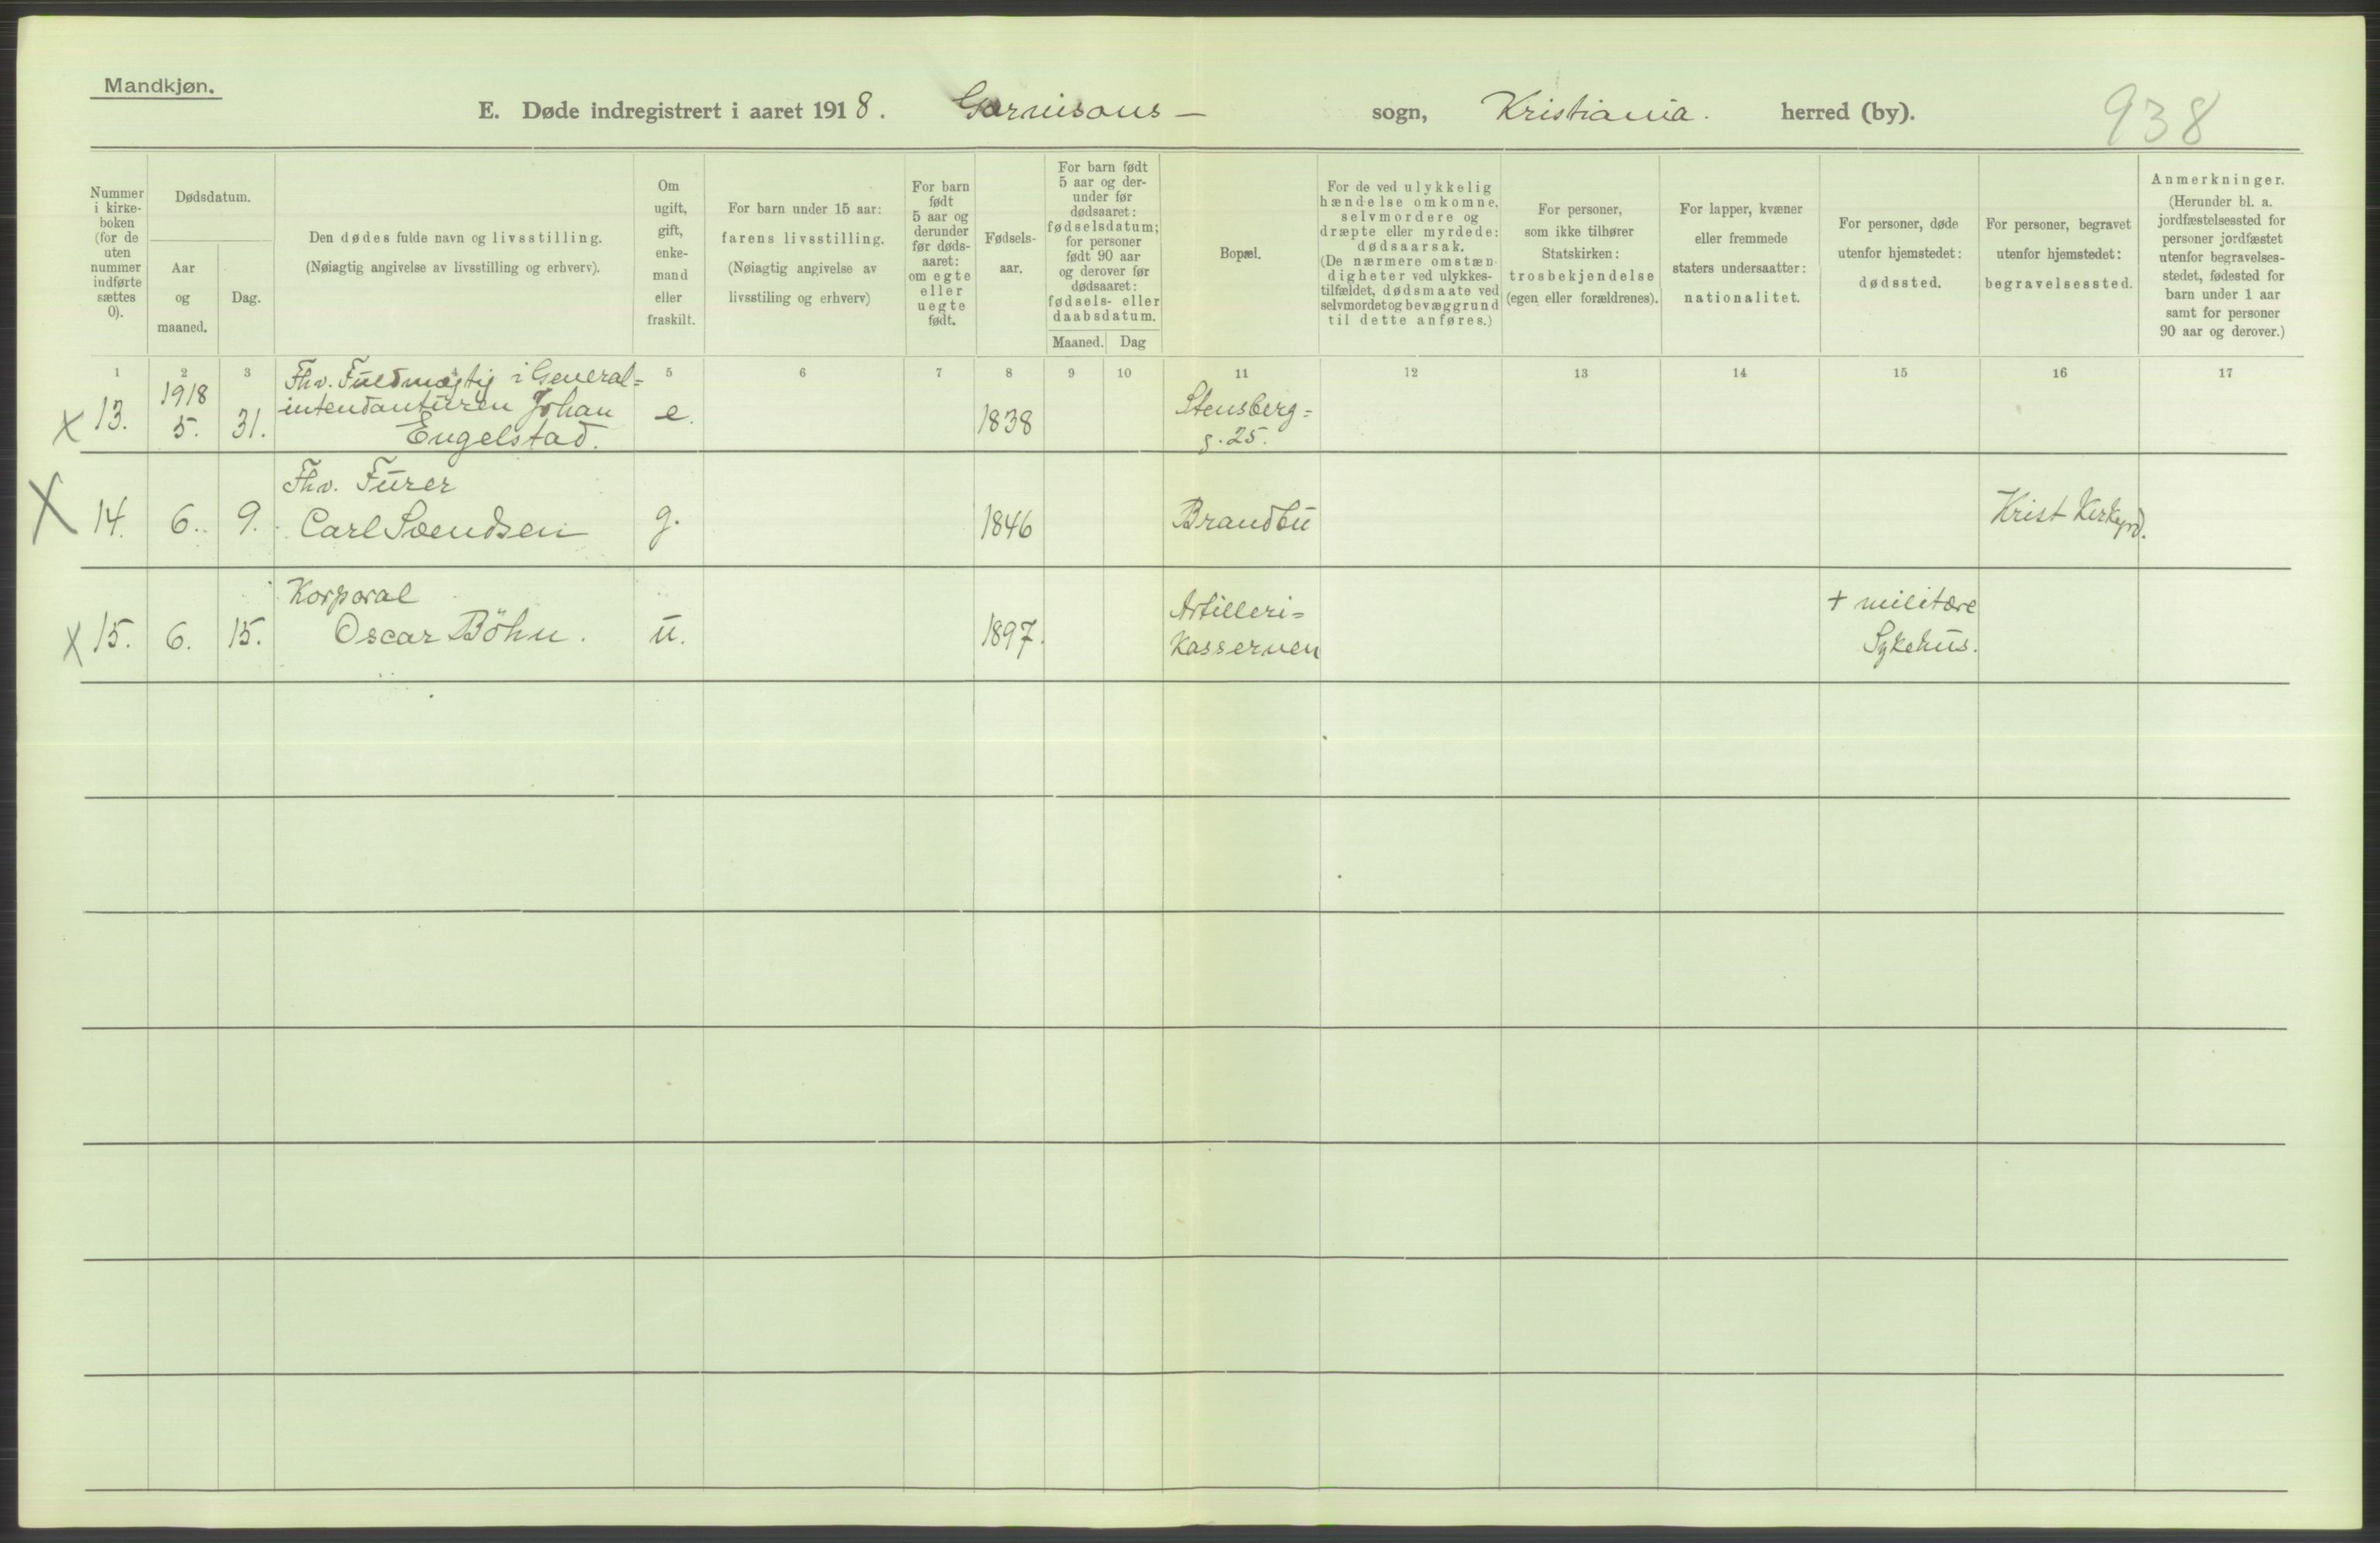 Mandkjøn.
E. Døde indregistrert i aaret 1918. Garnisons- sogn, Kristiania. herred (by). 938
Nummer
i kirke-
boken
(for de
uten
nummer
indførte
sættes
0).
Dødsdatum.
Aar
og
maaned.
Dag.
Den dødes fulde navn og livsstilling.
(Nøiagtig angivelse av livsstilling og erhverv).
Om
ugift,
gift,
enke-
mand
eller
fraskilt.
For barn under 15 aar:
farens livsstilling.
(Nøiagtig angivelse av
livsstiling og erhverv)
For barn
født
5 aar og
derunder
før døds-
aaret:
om egte
eller
uegte
født.
Fødsels-
aar.
For barn født
5 aar og der-
under før
dødsaaret:
fødselsdatum;
for personer
født 90 aar
og derover før
dødsaaret:
fødsels- eller
daabsdatum.
Maaned. Dag
Bopæl.
For de ved ulykkelig
hændelse omkomne,
selvmordere og
dræpte eller myrdede:
dødsaarsak.
(De nærmere omstæn-
digheter ved ulykkes-
tilfældet, dødsmaate ved
selvmordet og bevæggrund
til dette anføres.)
For personer,
som ikke tilhører
Statskirken:
trosbekjendelse
(egen eller forældrenes).
For lapper, kvæner
eller fremmede
staters undersaatter:
nationalitet.
For personer, døde
utenfor hjemstedet:
dødssted.
For personer, begravet
utenfor hjemstedet:
begravelsessted.
Anmerkninger.
(Herunder bl. a.
jordfæstelsessted for
personer jordfæstet
utenfor begravelses-
stedet, fødested for
barn under 1 aar
samt for personer
90 aar og derover.)
1 2 3 5 6 7 8 9 10 11 12 13 14 15 16 17
1918
Fhv. Fuldmægtig i General=
intendanturen Johan
Engelstad.
x 13. 5. 31. e. 1838
Stensberg=
g. 25.
Fhv. Furer
X 14. 6. 9. Carl Svendsen g. 1846 Brandbu Krist Kirkegrd.
Korporal
x 15. 6. 15. Oscar Böhn. u. 1897.
Artilleri=
Kassernen
+ militære
Sykehus.